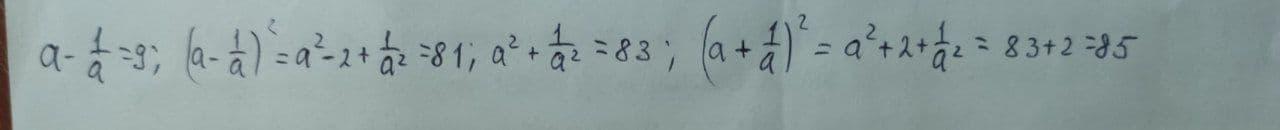 a - 1/a = 9; (a - 1/a)² = a² - 2 + 1/a² = 81; a² + 1/a² = 83; (a + 1/a)² = a² + 2 + 1/a² = 83 + 2 = 85